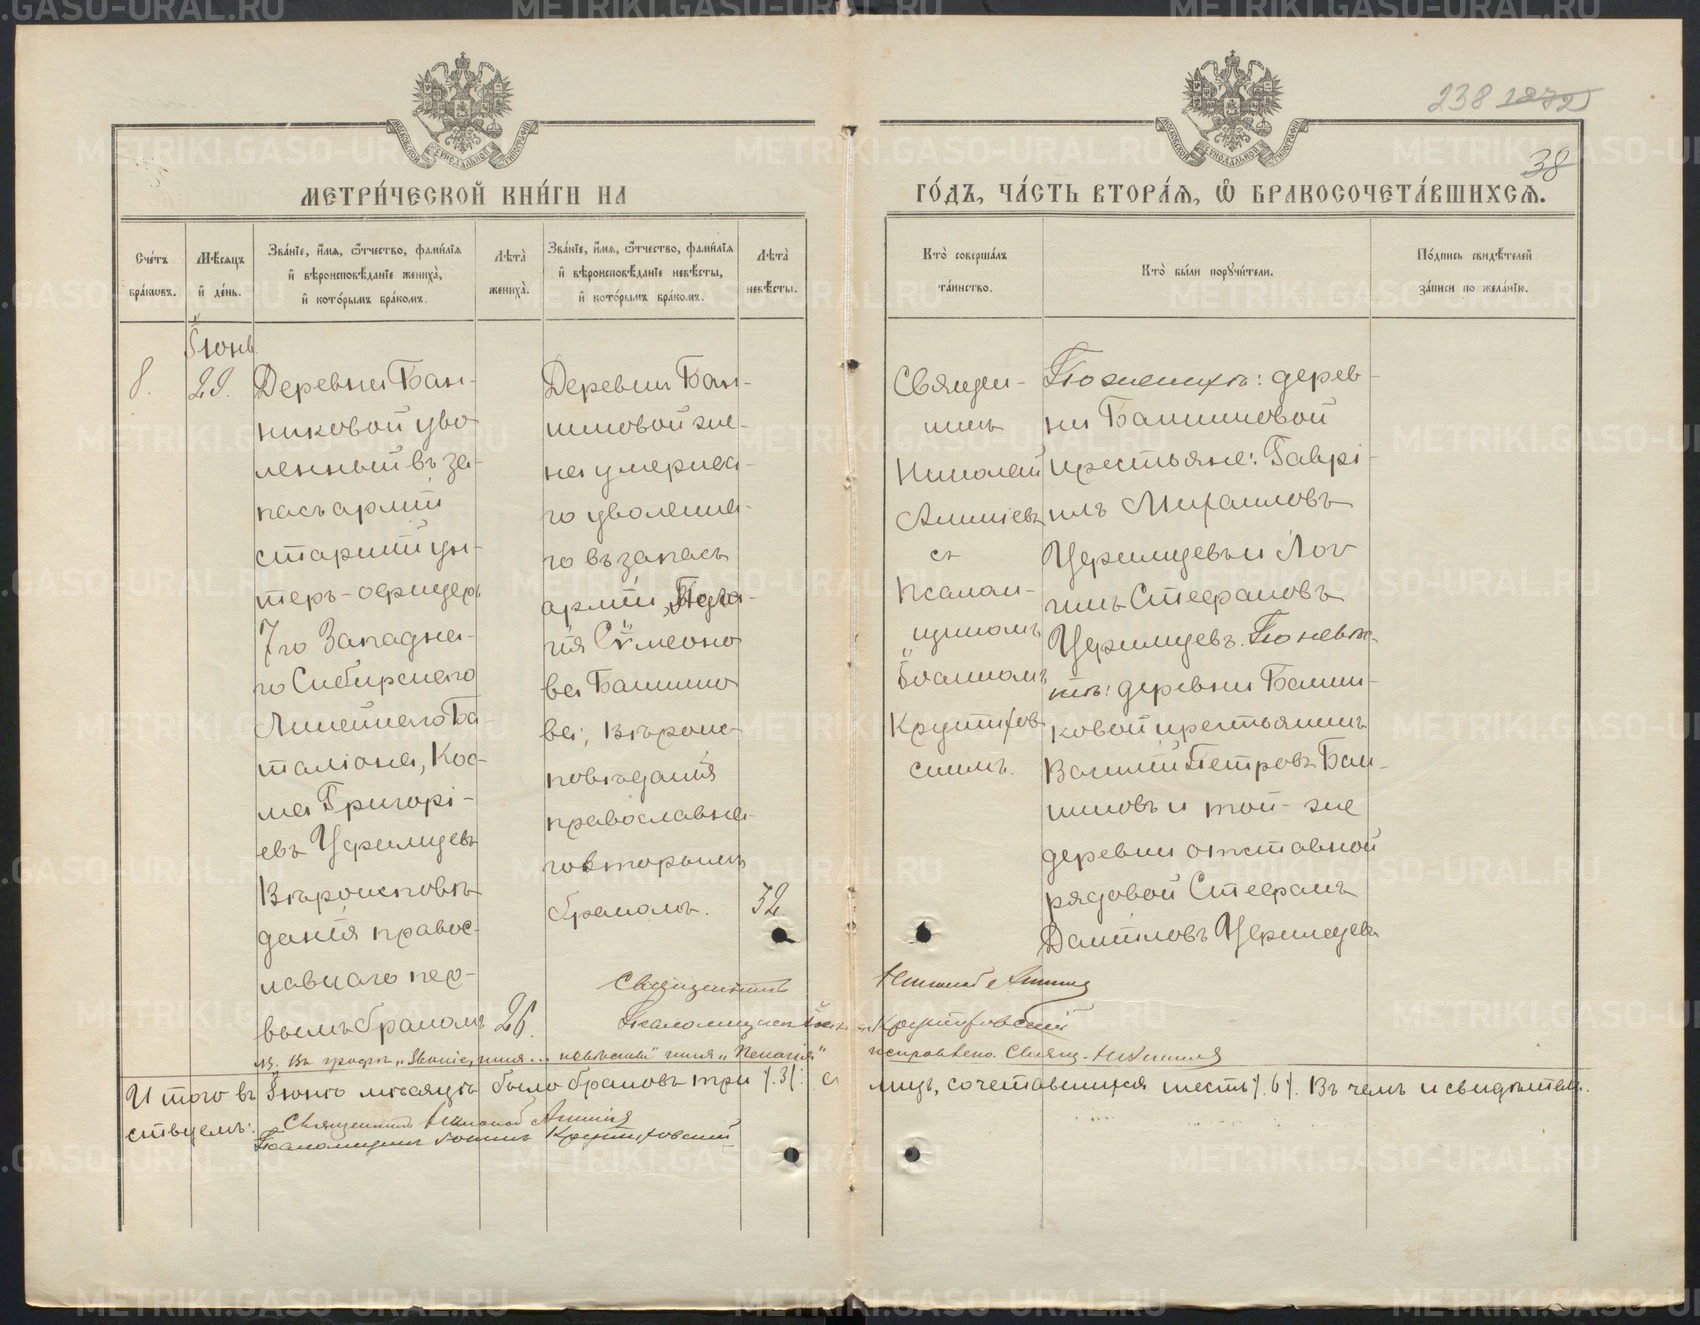 238 1872
38
МЕТРИ́ЧЕСКОЙ КНИ́ГИ НА
ГО́ДЪ, ЧА́СТЬ ВТОРА́Я, Ѿ БРАКОСОЧЕТА́ВШИХСЯ.
Сче́тъ бра́кѡвъ.
Мѣ́сяцъ и де́нь.
Зва́нїе, и́мя, о́тчество, фами́лїя
и вѣроисповѣ́данїе жениха̀,
и кото́рымъ бра́комъ.
Лѣ́та жениха̀.
Зва́нїе, и́мя, о́тчество, фами́лїя
и вѣроисповѣ́данїе невѣ́сты,
и кото́рымъ бра́комъ.
Лѣ́та невѣ́сты.
Кто̀ соверша́лъ
та́инство.
Кто̀ бы́ли поручи́тели.
По́дпись свидѣ́телей
за́писи по жела́нїю.
8.
Іюнь
29.
Деревни Бан-
никовой уво
ленный въ за-
пасъ арміи
старшій ун-
теръ-офицеръ
7го Западна-
го Сибирскаго
Линейнаго Ба-
таліона, Кос-
ма Григорі-
евъ Черемцевъ
Вѣроисповѣ-
данія правос-
лавнаго пер-
вымъ бракомъ
26.
Деревни Бан-
никовой же-
на умерша-
го уволенна-
го въ запасъ
арміи, Пела-
гія Сѵмеоно
ва Банинико
ва, вѣроис-
повѣданія
православна-
го вторымъ
бракомъ.
32
Священ-
никъ
Николай
Аничіевъ
съ
Псалом-
щикомъ
Іоанномъ
Крутиховскимъ.
По женихѣ: дерев-
ни Банниковой
крестьяне: Гаврі-
илъ Михаиловъ
Черемцевъ и Лог
гинъ Стефановъ
Черемцевъ. По невѣ-
стѣ: деревни Банни-
ковой крестьянинъ
Василій Петровъ Бан-
никовъ и той-же
деревни отставной
рядовой Стефанъ
Даниловъ Черемцевъ
Священникъ Николай
Псаломщикъ Іоаннъ Крутиховскій
исправлено. Свящ.
Итого въ Іюнѣ мѣсяцѣ было браковъ три /.3/: а лицъ, сочетавшихся шесть /.6/. Въ чемъ и свидѣтель-
ствуемъ:
Священникъ Николай
Псаломщикъ Іоаннъ Крутиховскій
METRIKI.GASO-URAL.RU